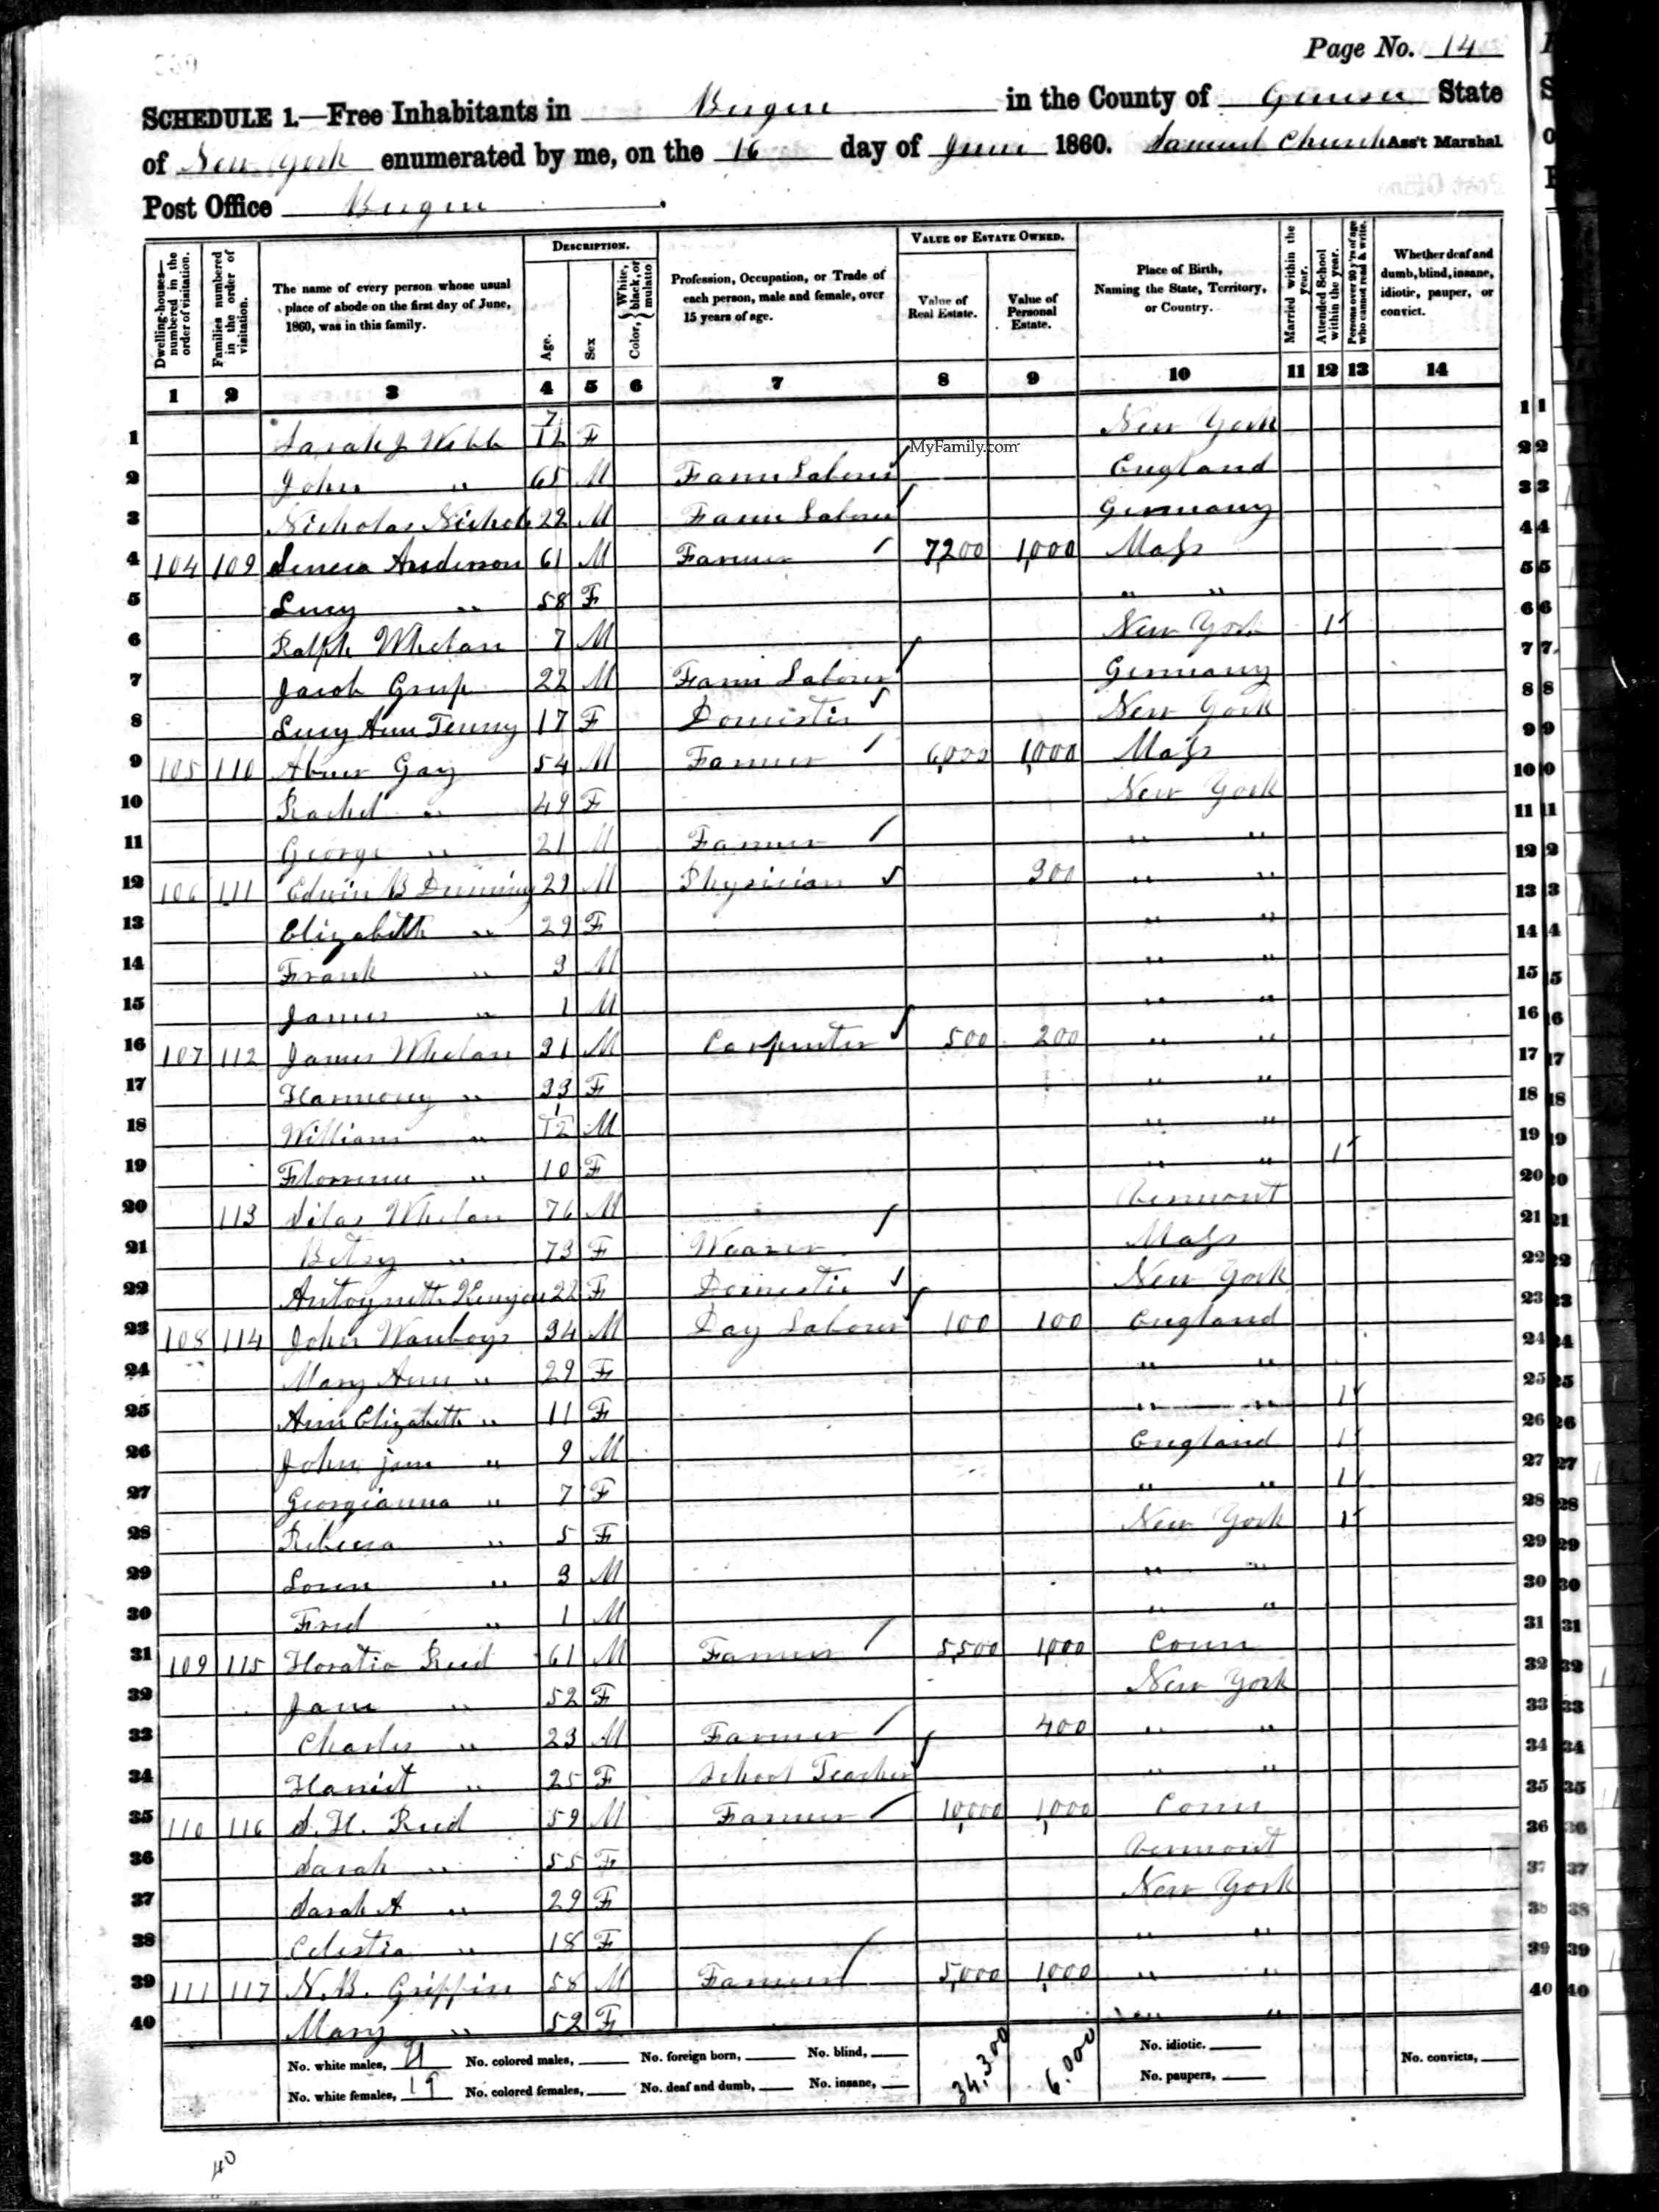 Page No. 14
SCHEDULE 1.—Free Inhabitants in Bergen in the County of Genesee State
of New York enumerated by me, on the 16 day of June 1860. Samuel Church Ass't Marshal
Post Office Bergen
Dwelling-houses—numbered in the order of visitation.
Families numbered in the order of visitation.
The name of every person whose usual place of abode on the first day of June, 1860, was in this family.
DESCRIPTION.
Age.
Sex
Color, White, black, or mulatto
Profession, Occupation, or Trade of each person, male and female, over 15 years of age.
VALUE OF ESTATE OWNED.
Value of Real Estate.
Value of Personal Estate.
Place of Birth, Naming the State, Territory, or Country.
Married within the year.
Attended School within the year.
Persons over 20 y'rs of age who cannot read & write.
Whether deaf and dumb, blind, insane, idiotic, pauper, or convict.
1 2 3 4 5 6 7 8 9 10 11 12 13 14
1 Sarah J Webb 7/12 F New York 1
MyFamily.com
2 John " 65 M Farm Laborer England 2
3 Nicholas Nichols 22 M Farm Laborer Germany 3
4 104 109 Seneca Anderson 61 M Farmer 7,200 1,000 Mass 4
5 Lucy " 58 F " " 5
6 Ralph Whelan 7 M New York 1 6
7 Jacob Grup 22 M Farm Laborer Germany 7
8 Lucy Ann Tenny 17 F Domestic New York 8
9 105 110 Abner Gay 54 M Farmer 6,000 1,000 Mass 9
10 Rachel " 49 F New York 10
11 George " 21 M Farmer " " 11
12 106 111 Edwin B Dunning 29 M Physician 300 " " 12
13 Elizabeth " 29 F " " 13
14 Frank " 3 M " " 14
15 James " 1 M " " 15
16 107 112 James Whelan 31 M Carpenter 500 200 " " 16
17 Harmony " 33 F " " 17
18 William " 1/12 M " " 18
19 Florence " 10 F " " 1 19
20 113 Silas Whelan 76 M Vermont 20
21 Betsy " 73 F Weaver Mass 21
22 Antoynette Kenyon 22 F Domestic New York 22
23 108 114 John Wanboys 34 M Day Laborer 100 100 England 23
24 Mary Ann " 29 F " " 24
25 Ann Elizabeth " 11 F " " 1 25
26 John jam " 9 M England 1 26
27 Georgianna " 7 F " " 1 27
28 Rebecca " 5 F New York 1 28
29 Loren " 3 M " " 29
30 Fred " 1 M " " 30
31 109 115 Horatio Reed 61 M Farmer 5,500 1,000 Conn 31
32 Jane " 52 F New York 32
33 Charles " 23 M Farmer 400 " " 33
34 Harriet " 25 F School Teacher " " 34
35 110 116 S. H. Reed 59 M Farmer 10,000 1,000 Conn 35
36 Sarah " 55 F Vermont 36
37 Sarah A " 29 F New York 37
38 Celestia " 18 F " " 38
39 111 117 N. B. Griffin 58 M Farmer 5,000 1,000 " " 39
40 Mary " 52 F " " 40
No. white males, 21 No. colored males, No. foreign born, No. blind, 34,300 6,000 No. idiotic. No. convicts,
No. white females, 19 No. colored females, No. deaf and dumb, No. insane, No. paupers,
40